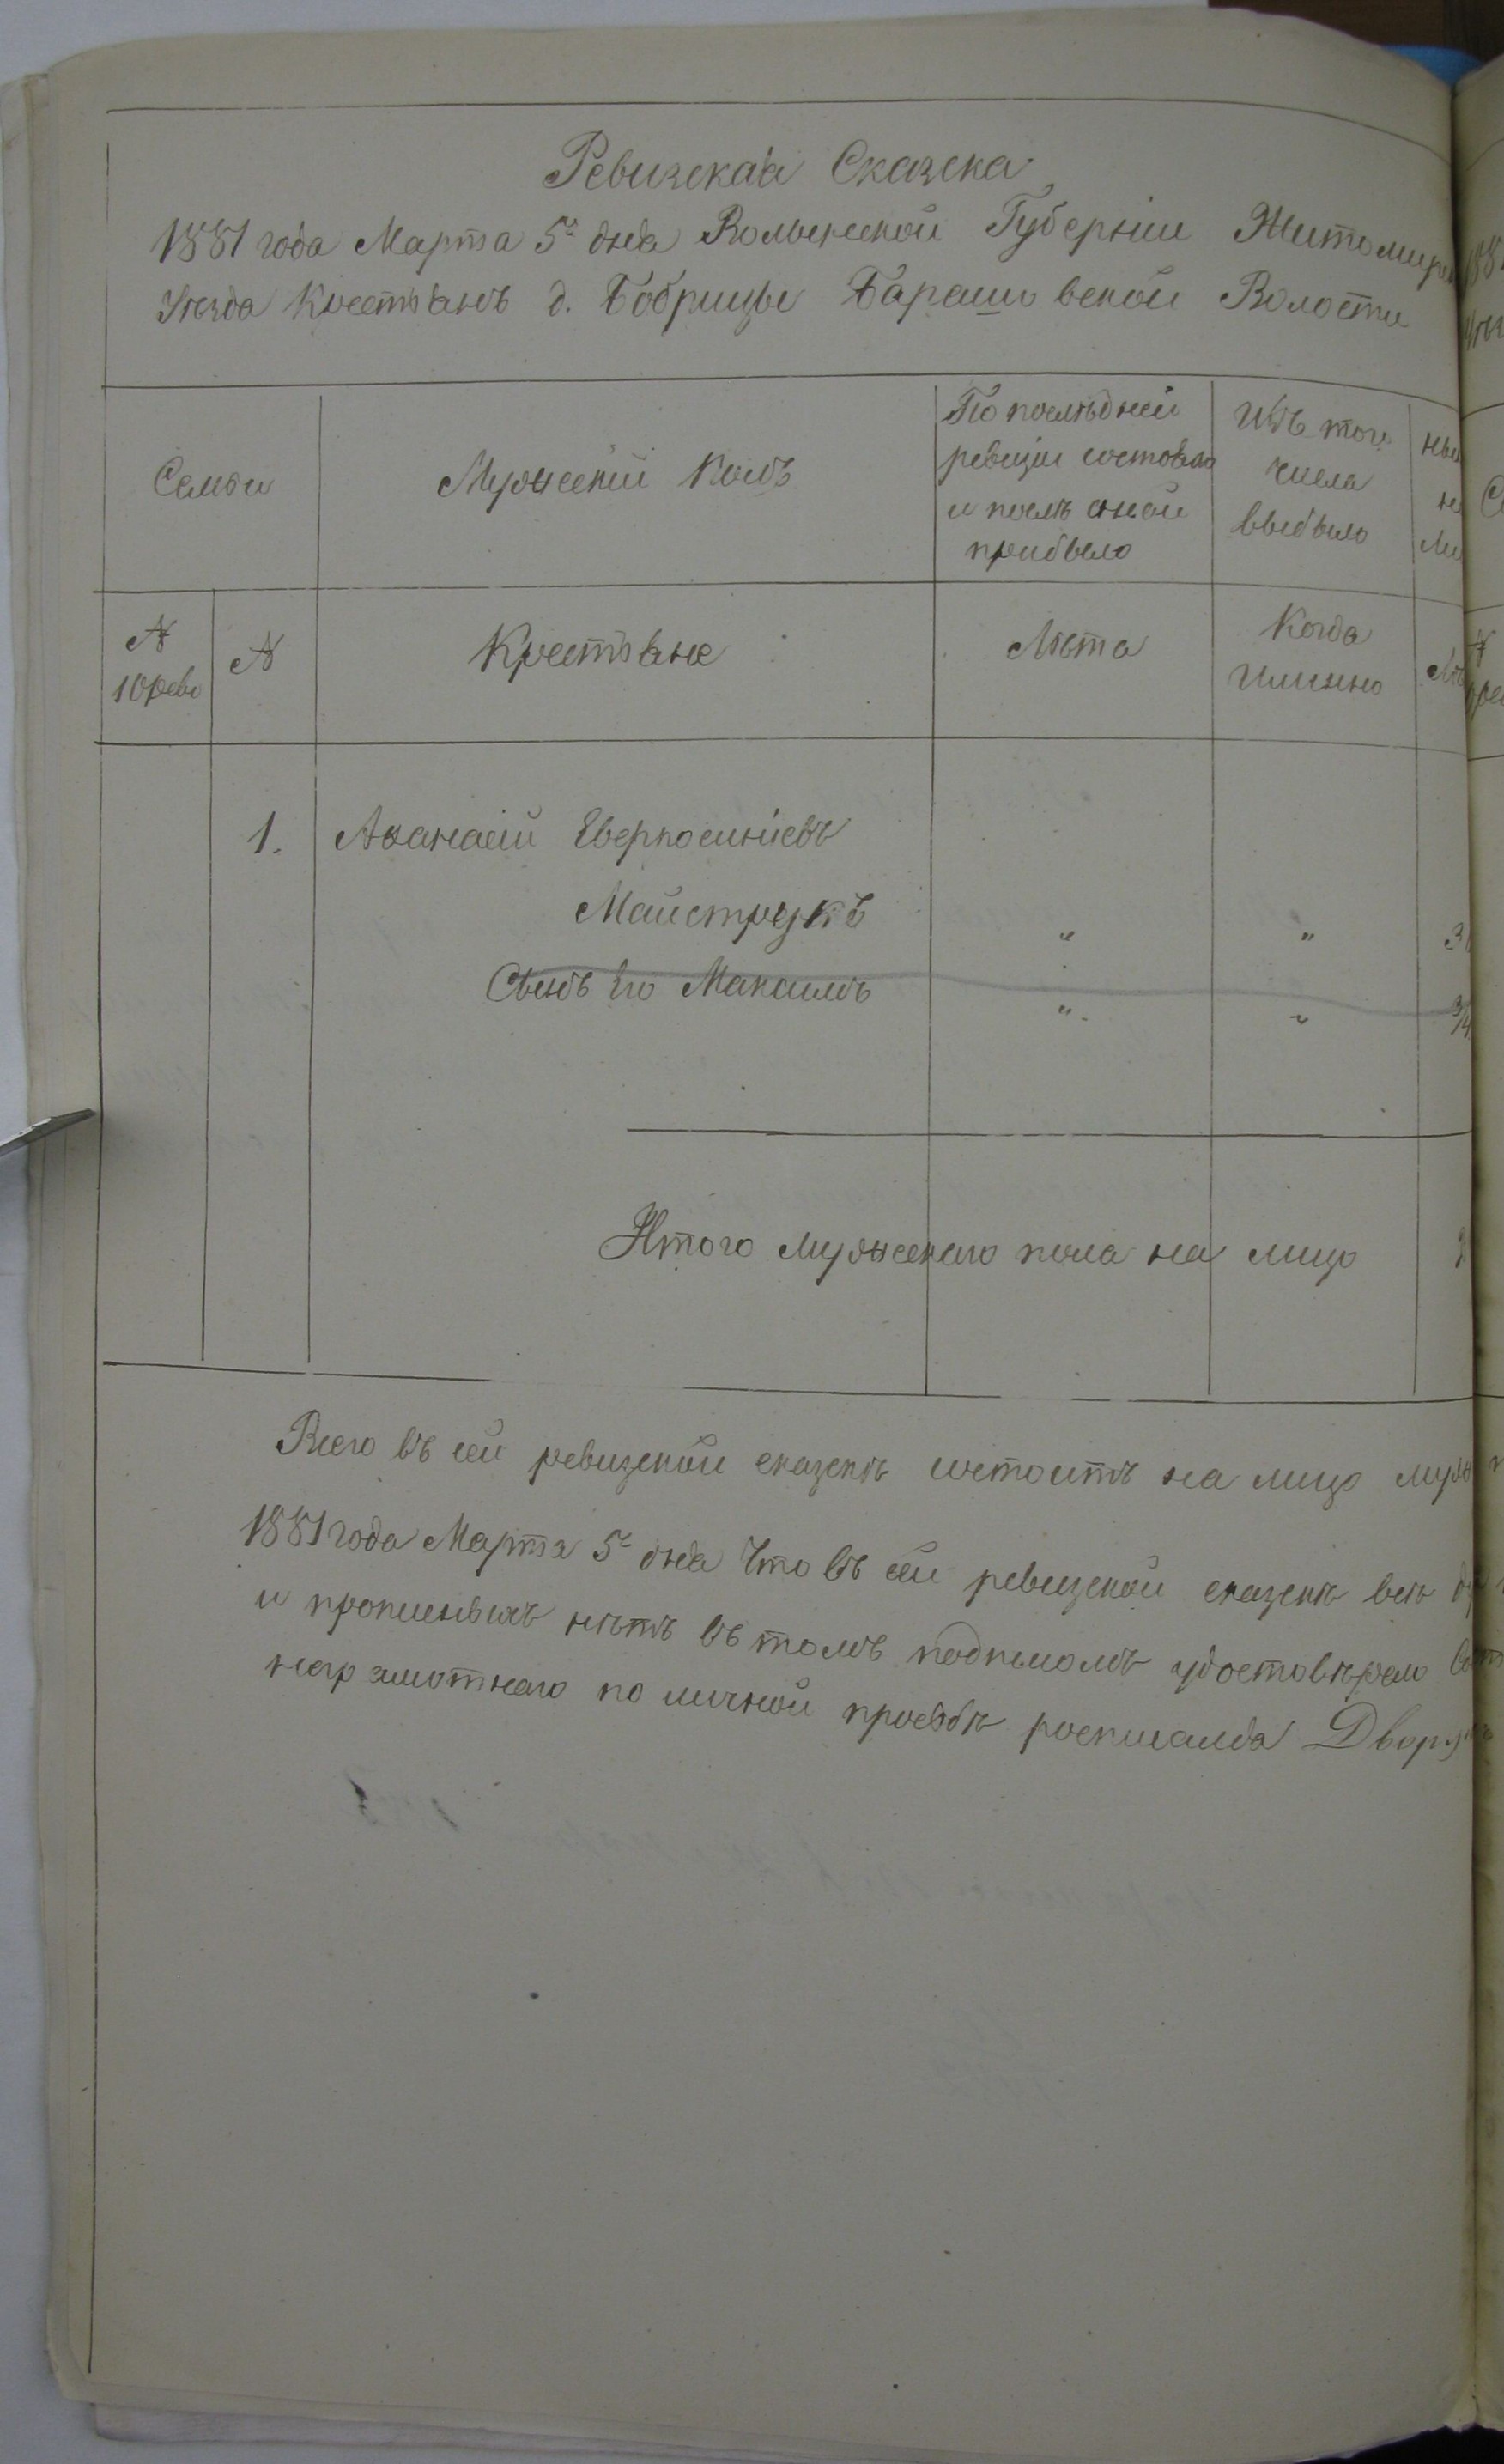 Ревизская Сказка
1881 года Марта 5го дня Волынской Губерніи Житомирск
Уѣзда Крестьянъ д. Бобрицы Барашовской Волости
Семьи
Мужескій Полъ
По послѣдней
ревизіи состояло
и послѣ оной
прибыло
Изъ того
числа
выбыло
№
10 рев
№
Крестьяне
Лѣта
Когда
Именно
1.
Аѳанасій Еверкосиніевъ
Майструкъ
"
"
Сынъ Его Максимъ
"
"
Итого мужескаго пола на лицо
Всего въ сей ревизской сказкѣ состоитъ на лицо муж
1881 года Марта 5го дня Что въ сей ревизской сказкѣ всѣ
и прописныхъ нѣтъ въ томъ подписомъ удостовѣряю
неграмотнаго по личной просьбѣ росписался Дворян